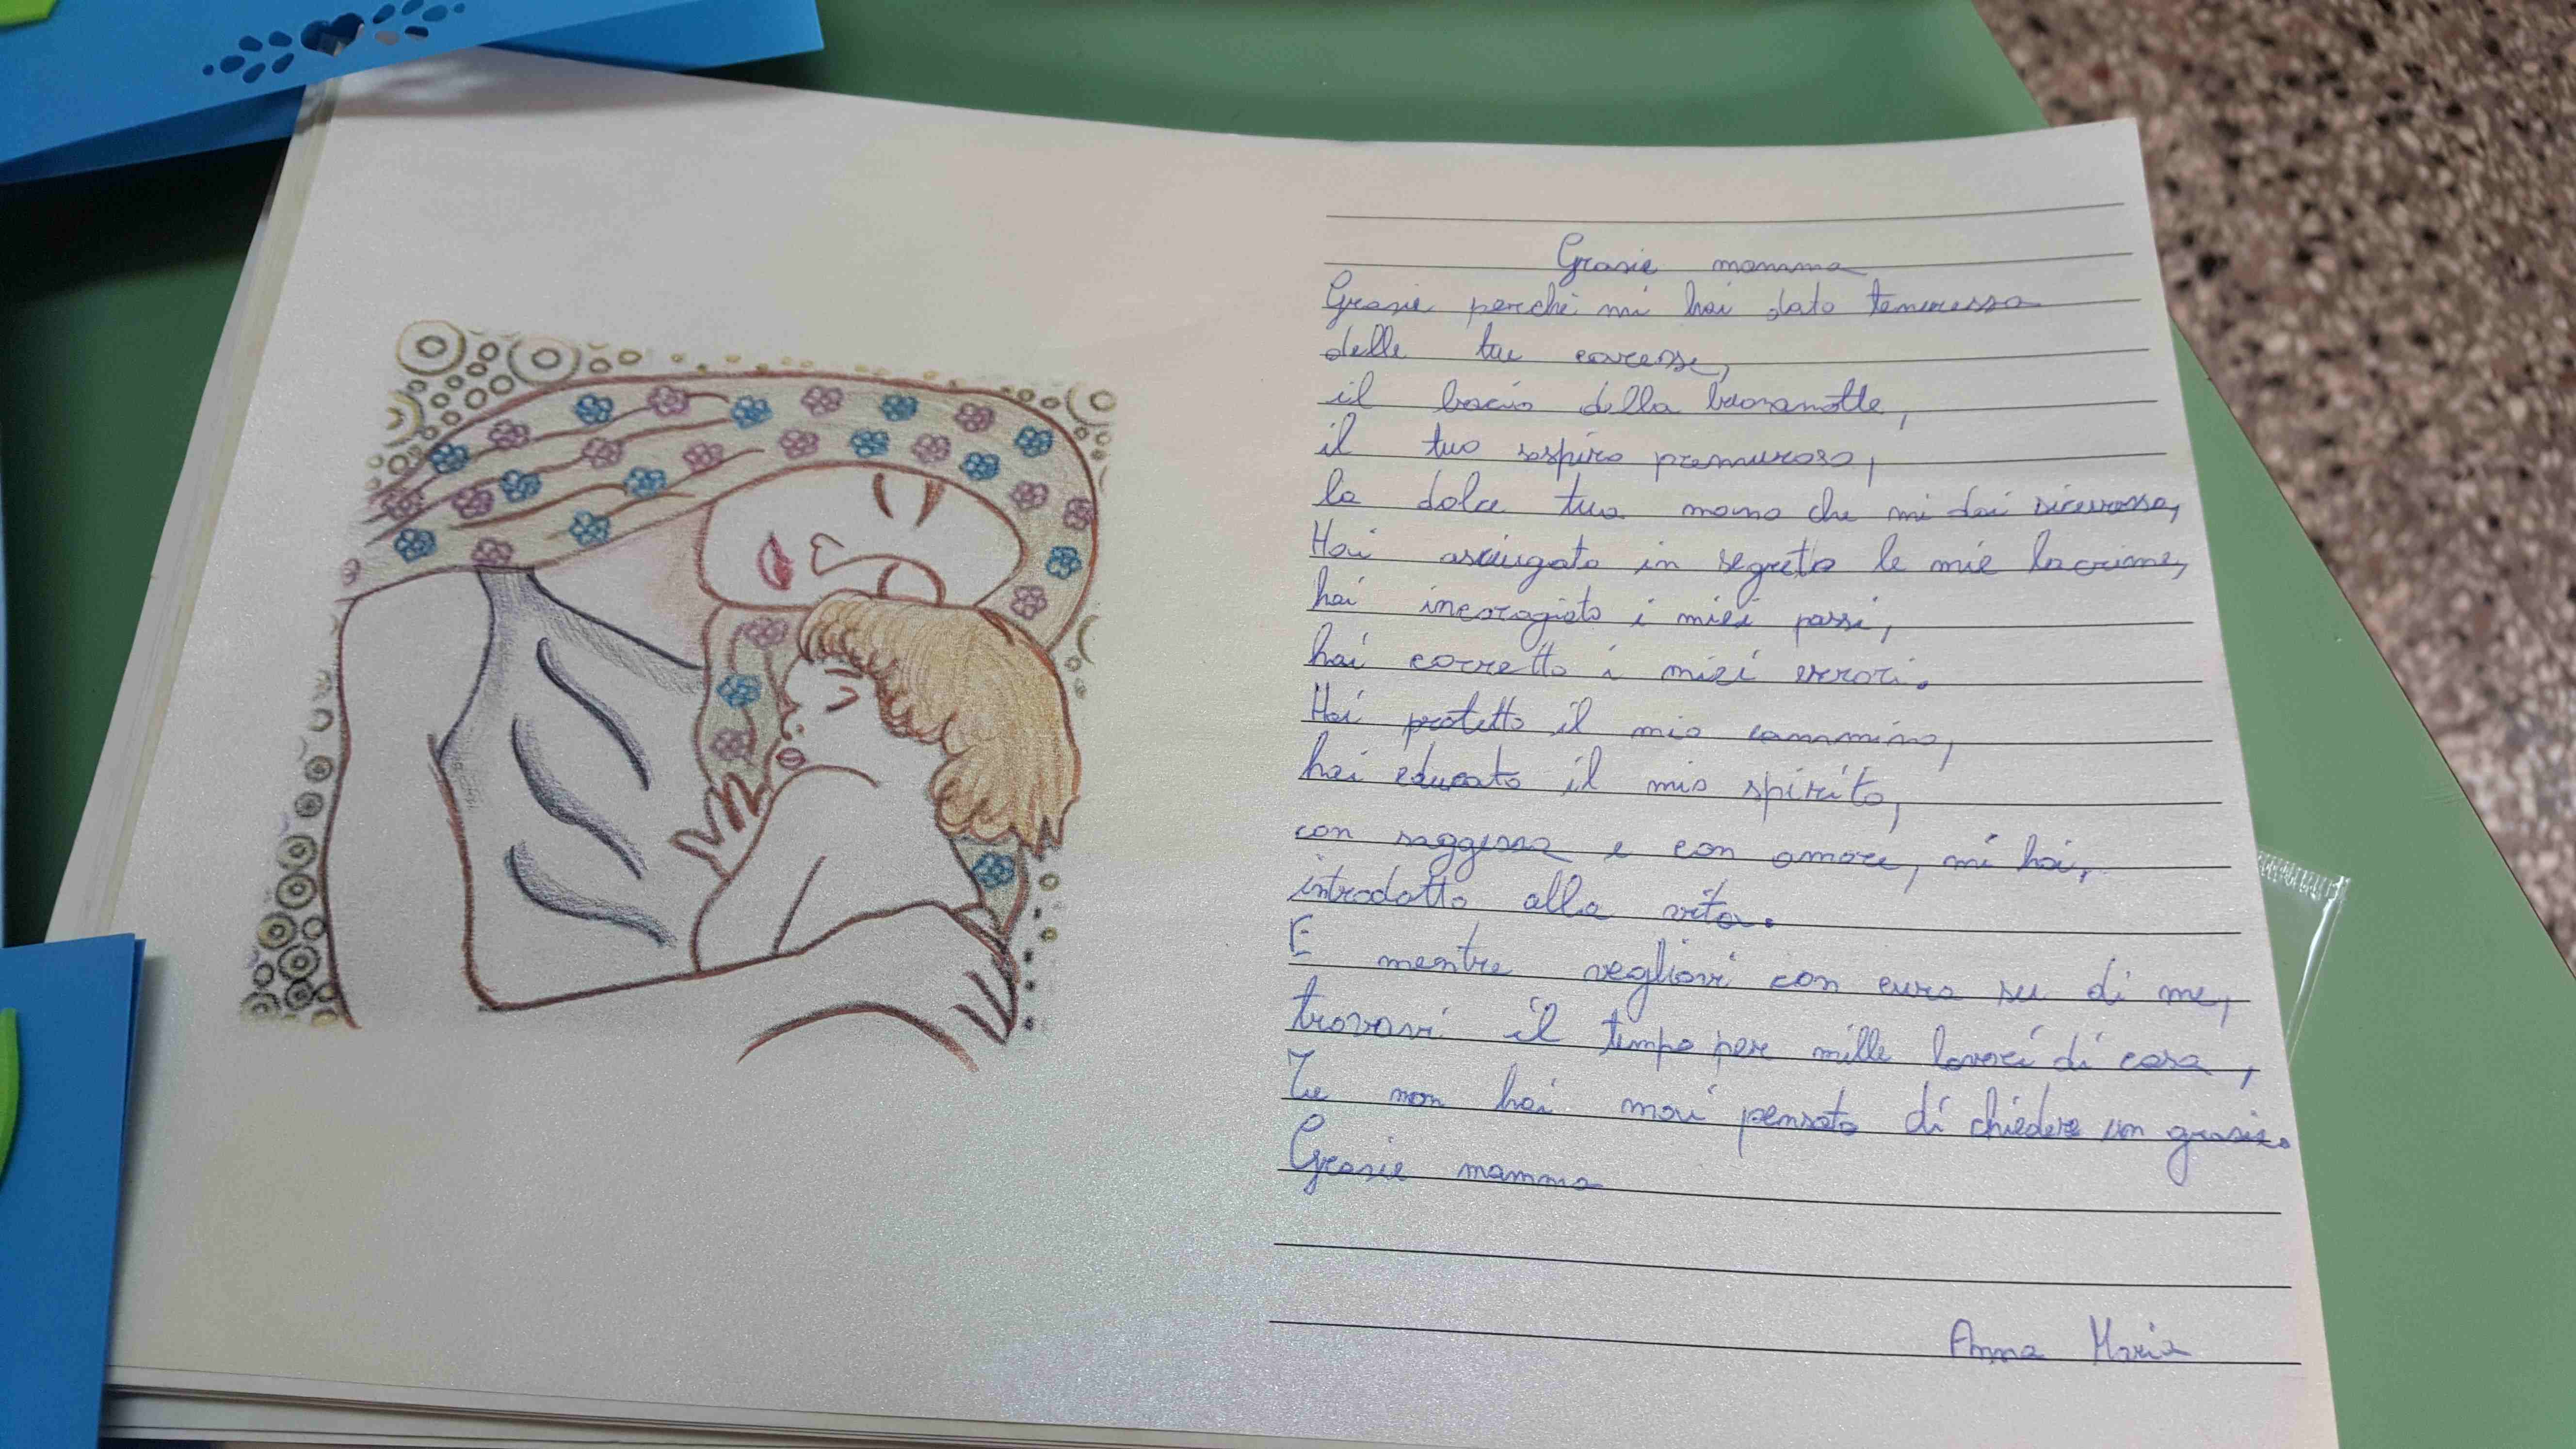 Grazie mamma
Grazie perché mi hai dato tenerezza
delle tue carezze,
il bacio della buonanotte,
il tuo sospiro premuroso,
la dolce tua mano che mi dai sicurezza,
Hai asciugato in segreto le mie lacrime,
hai incoragiato i miei passi,
hai corretto i miei errori.
Hai protetto il mio cammino,
hai educato il mio spirito,
con saggezza e con amore, mi hai,
introdotto alla vita.
E mentre vegliavi con cura su di me,
trovavi il tempo per mille lavori di casa,
Tu non hai mai pensato di chiedere un grazie.
Grazie mamma
Anna Maria